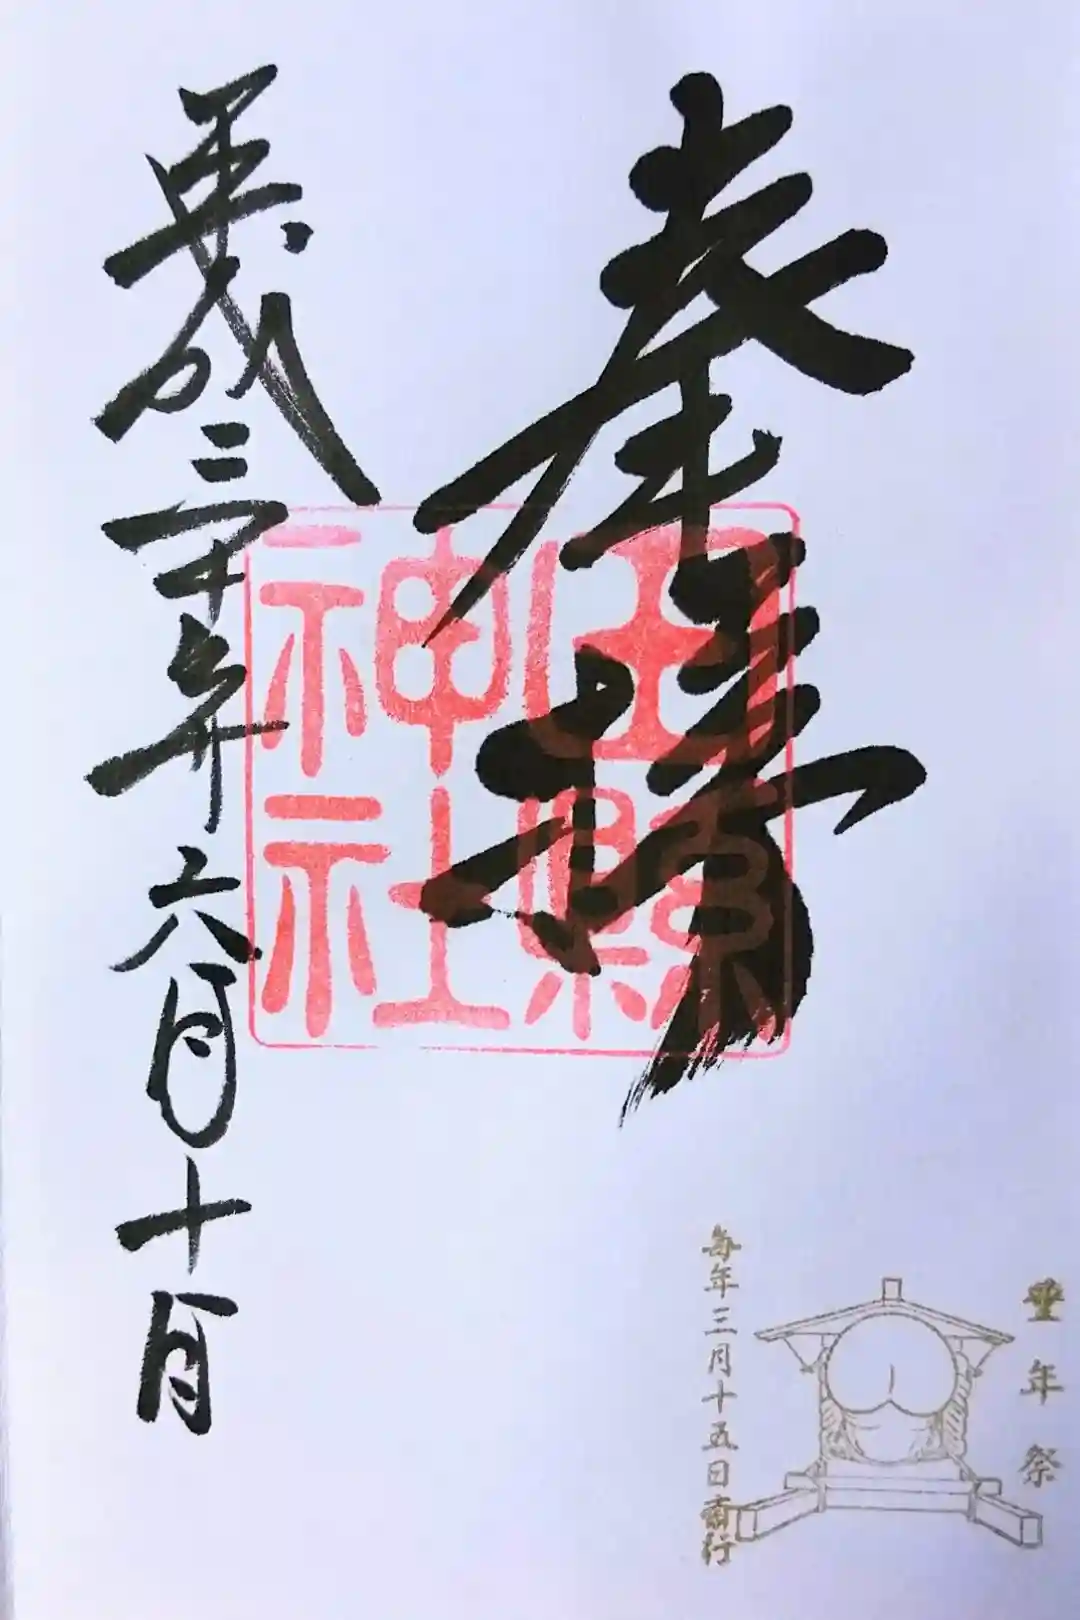 奉拝
田縣
神社
平成三十年六月十日
豊年祭
毎年三月十五日斎行